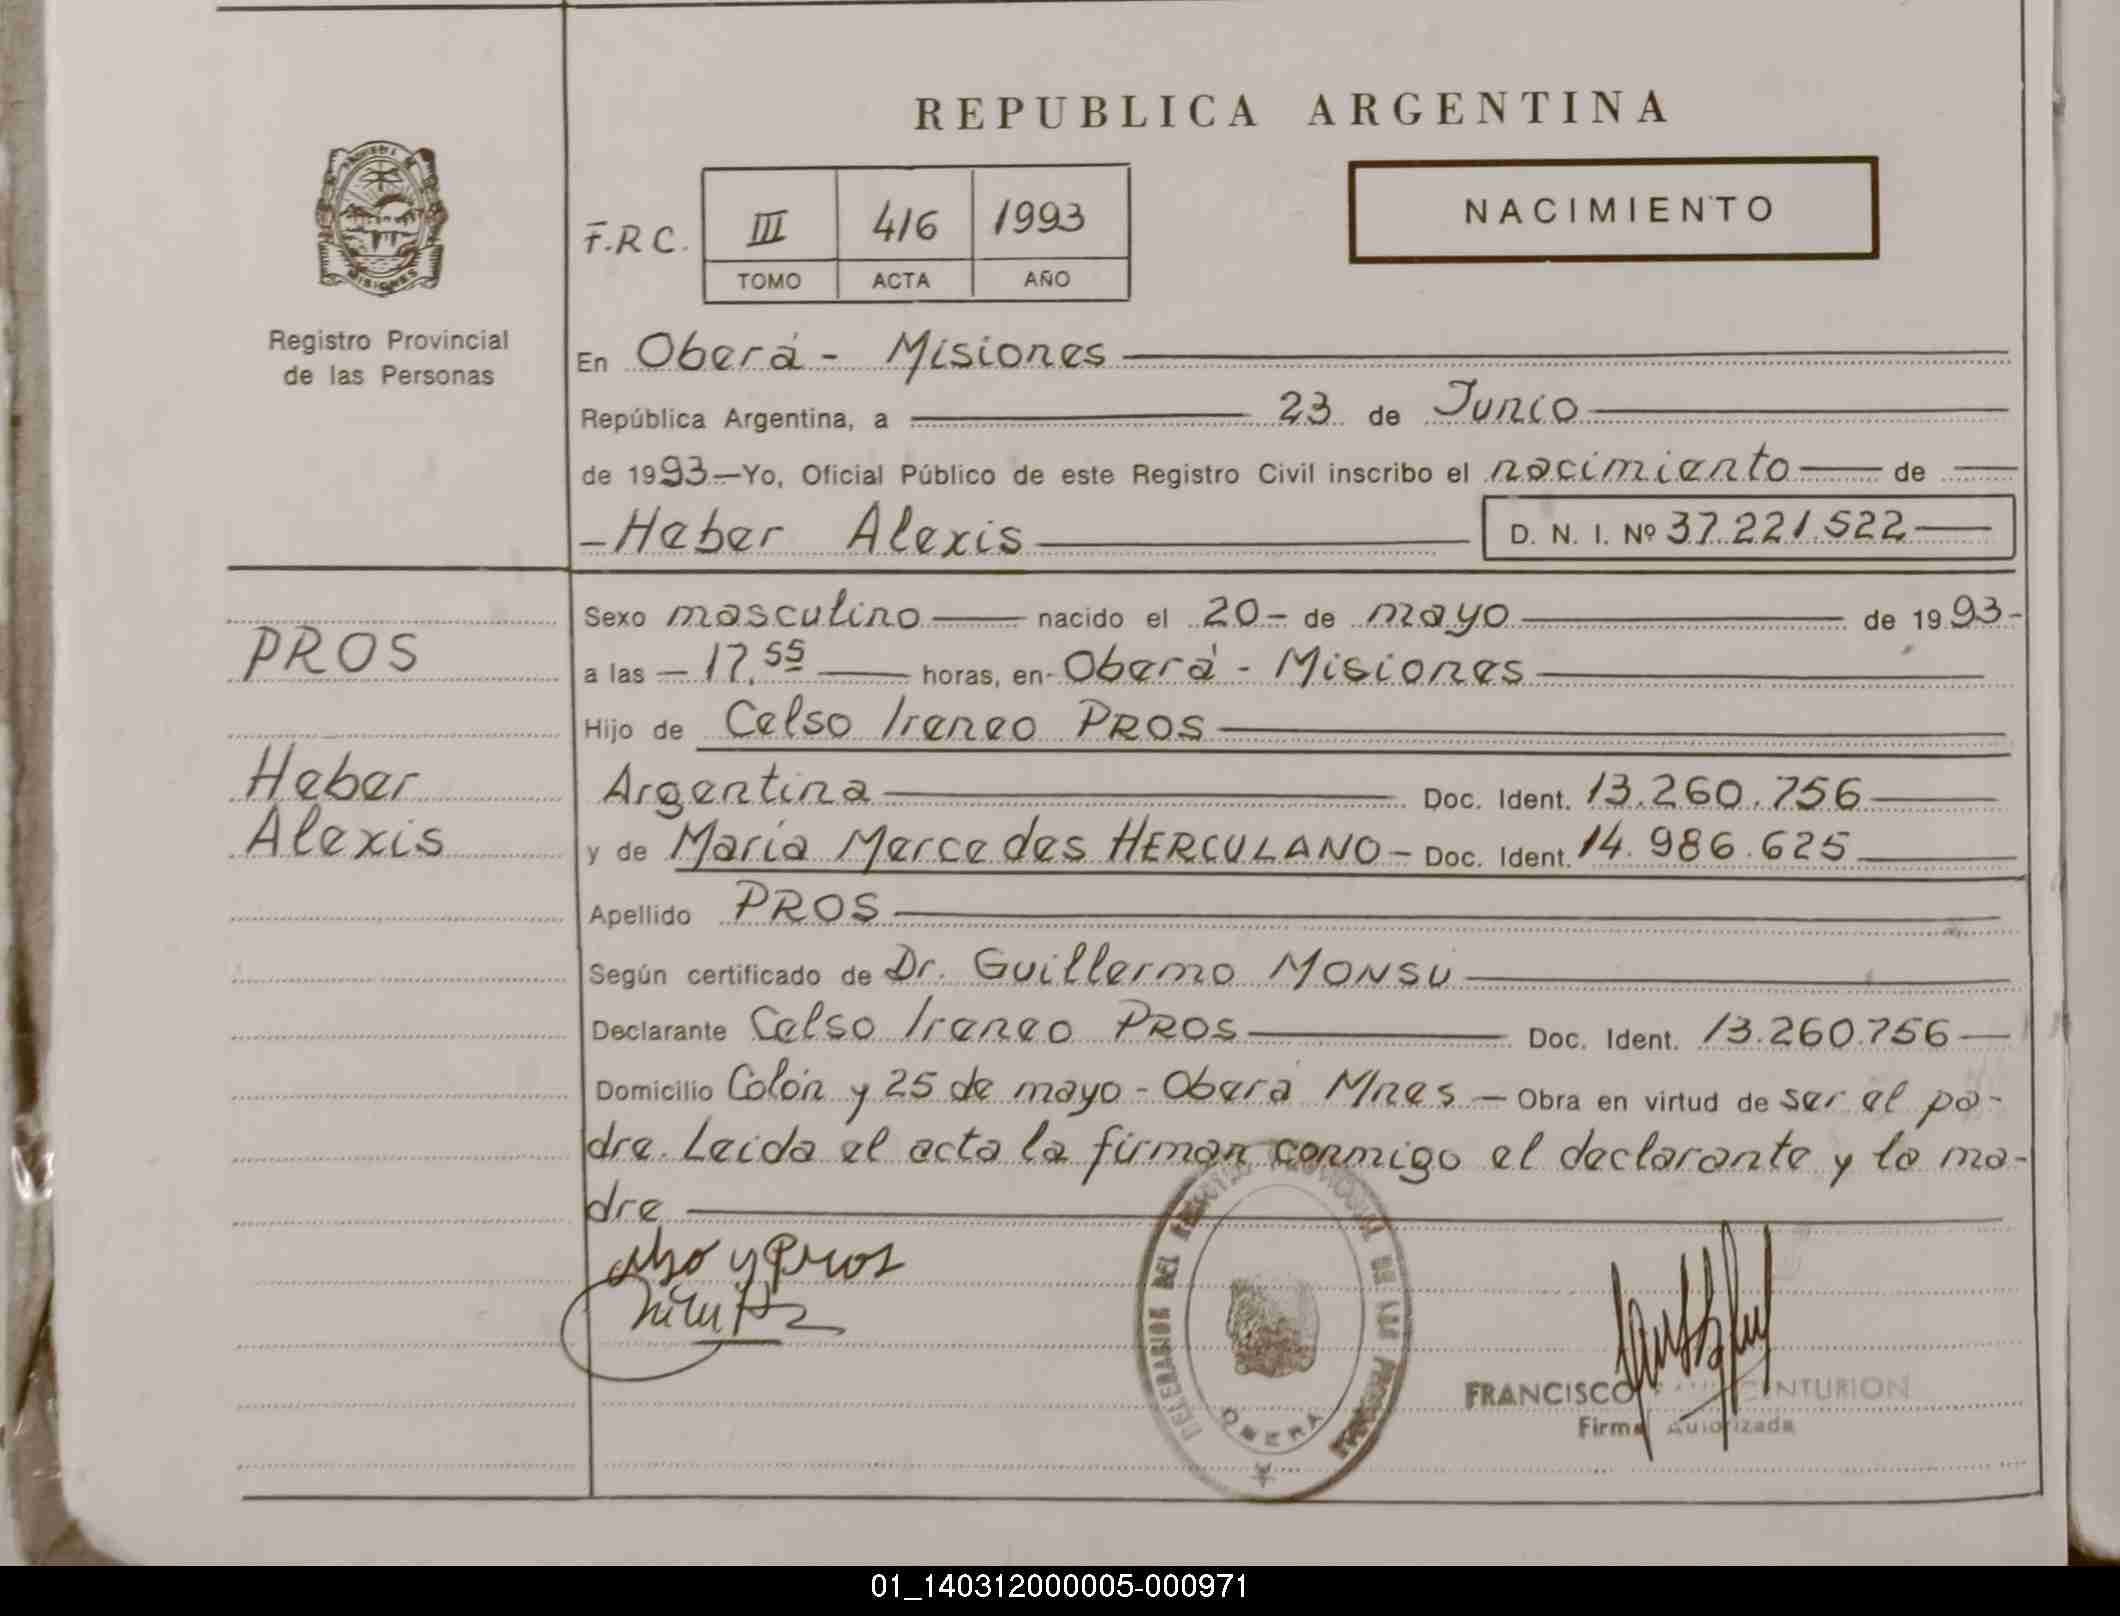 REPUBLICA ARGENTINA
NACIMIENTO
F.R.C. III 416 1993
TOMO ACTA AÑO
MISIONES
Registro Provincial
de las Personas
En Oberá - Misiones
República Argentina, a 23 de Junio
de 1993 - Yo, Oficial Público de este Registro Civil inscribo el nacimiento de
- Heber Alexis D. N. I. Nº 37.221.522
PROS
Heber
Alexis
Sexo masculino nacido el 20 - de mayo de 1993 -
a las - 17.55 horas, en - Oberá - Misiones
Hijo de Celso Ireneo PROS
Argentina Doc. Ident. 13.260.756
y de María Mercedes HERCULANO - Doc. Ident. 14.986.625
Apellido PROS
Según certificado de Dr. Guillermo MONSU
Declarante Celso Ireneo PROS Doc. Ident. 13.260.756
Domicilio Colón y 25 de mayo - Oberá Mnes - Obra en virtud de ser el pa-
dre. Leida el acta la firman conmigo el declarante y la ma-
dre
Pros
OBERA
FRANCISCO CENTURION
Firma Autorizada
01_140312000005-000971